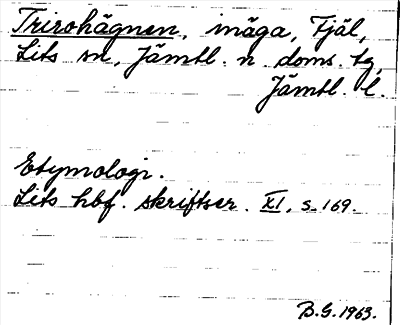 Trirohägnen, inäga, Tjäl,
Lits sn, Jämtl. n. doms. tg,
Jämtl. l.
Etymologi.
Lits hbf. skriftser. XI, s. 169.
B.G. 1963.